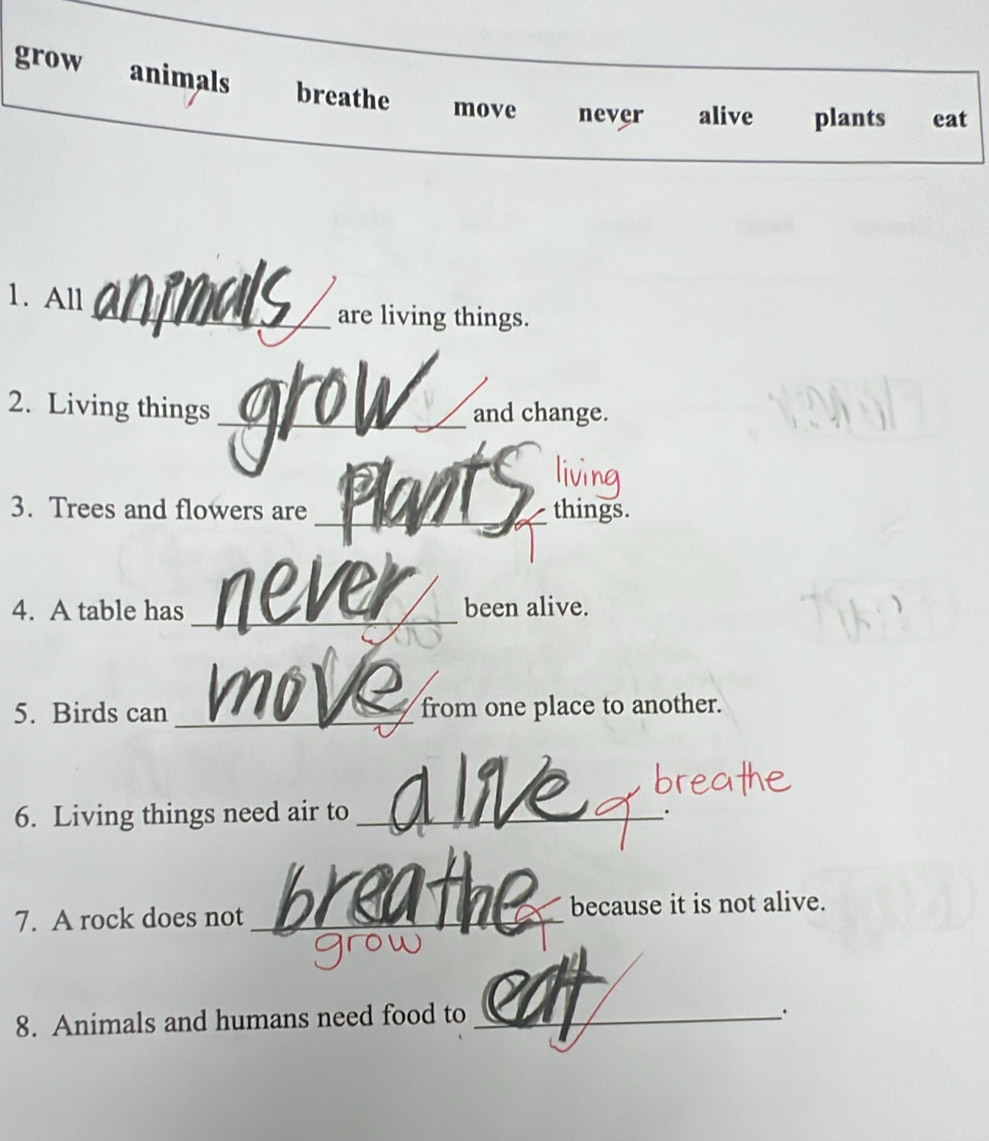 grow animals breathe move never alive plants eat
1. All animals are living things.
2. Living things grow and change.
living
3. Trees and flowers are plants things.
4. A table has never been alive.
5. Birds can move from one place to another.
breathe
6. Living things need air to alive.
7. A rock does not breathe because it is not alive.
grow
8. Animals and humans need food to eat.